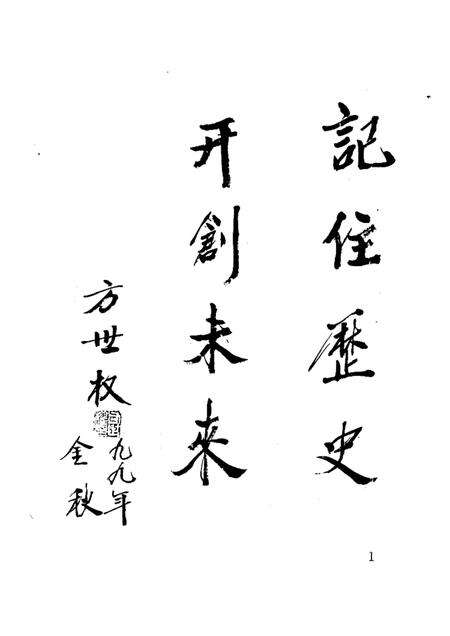 記住歷史
开創未來
方世权
九九年
金秋
1